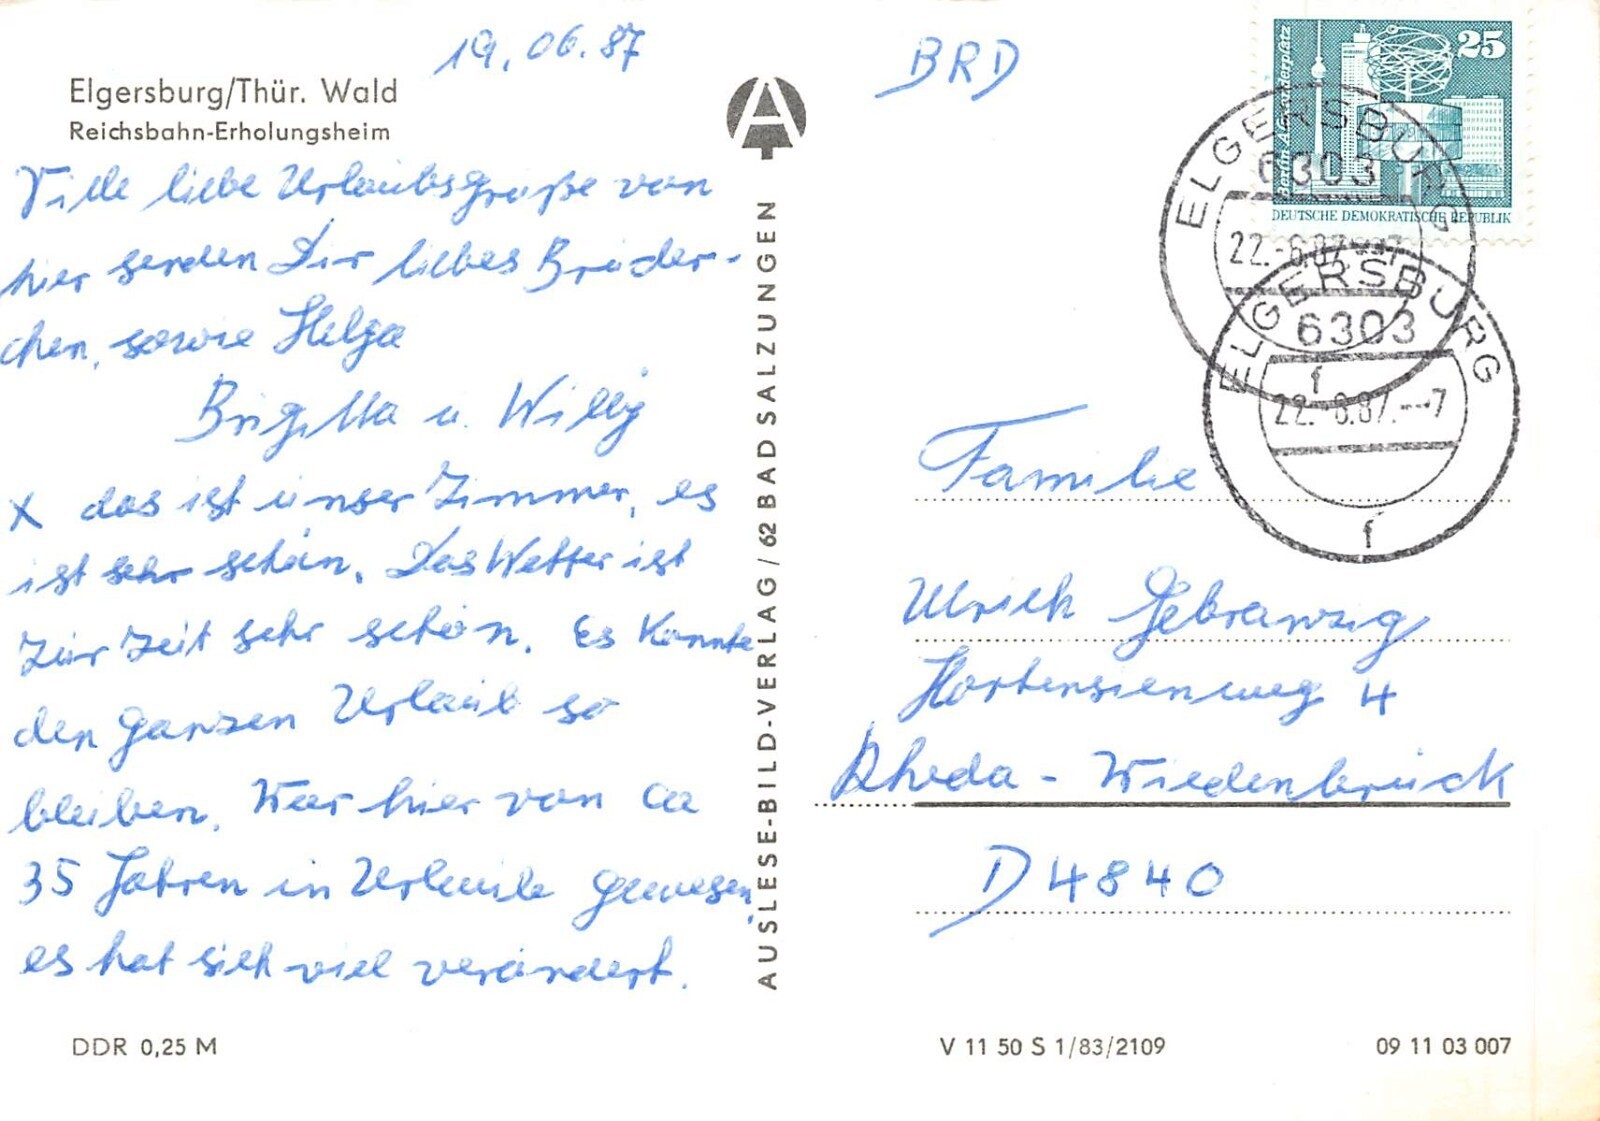 19.06.87
Elgersburg/Thür. Wald
Reichsbahn-Erholungsheim
Viele liebe Urlaubsgrüße von
hier senden Dir liebes Brüder-
chen, sowie Helga
Brigitta u. Willy
X das ist unser Zimmer, es
ist sehr schön. Das Wetter ist
zur Zeit sehr schön. Es könnte
den ganzen Urlaub so
bleiben. War hier von ca
35 Jahren in Urlaub gewesen,
es hat sich viel verändert.
DDR 0,25 M
AUSLESE-BILD-VERLAG/62 BAD SALZUNGEN
A
BRD
25
Berlin Alexanderplatz
DEUTSCHE DEMOKRATISCHE REPUBLIK
ELGERSBURG
6303
22.-6.87.--7
f
ELGERSBURG
6303
22.-6.87.--7
f
Familie
Ulrich
Hortensienweg 4
Rheda - Wiedenbrück
D 4840
V 11 50 S 1/83/2109
09 11 03 007